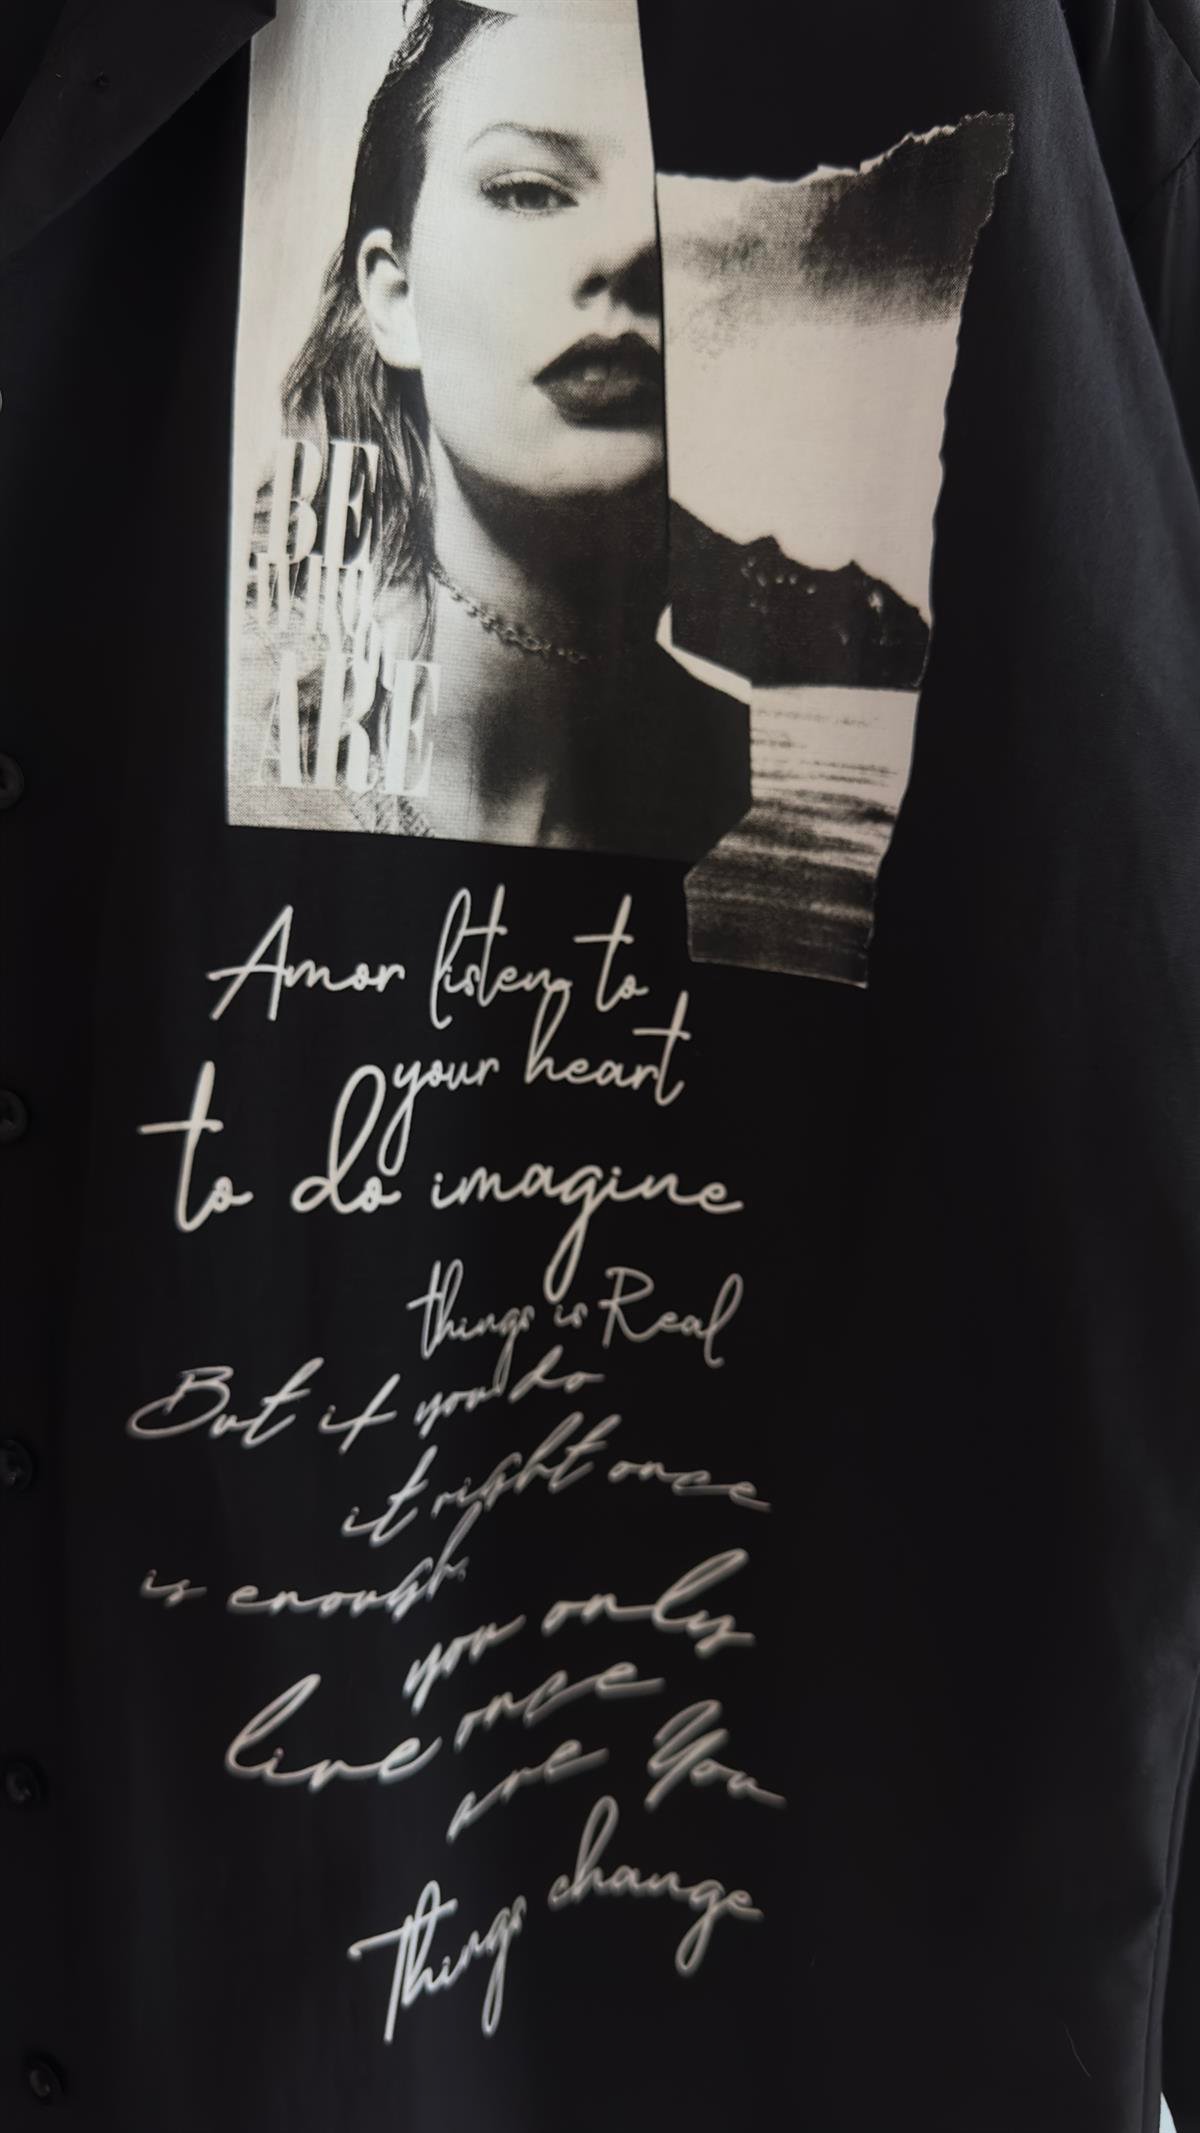 BE
WHO
ARE
Amor listen to
your heart
to do imagine
things is Real
But if you do
it right once
is enough
you only
live once
are You
Things change